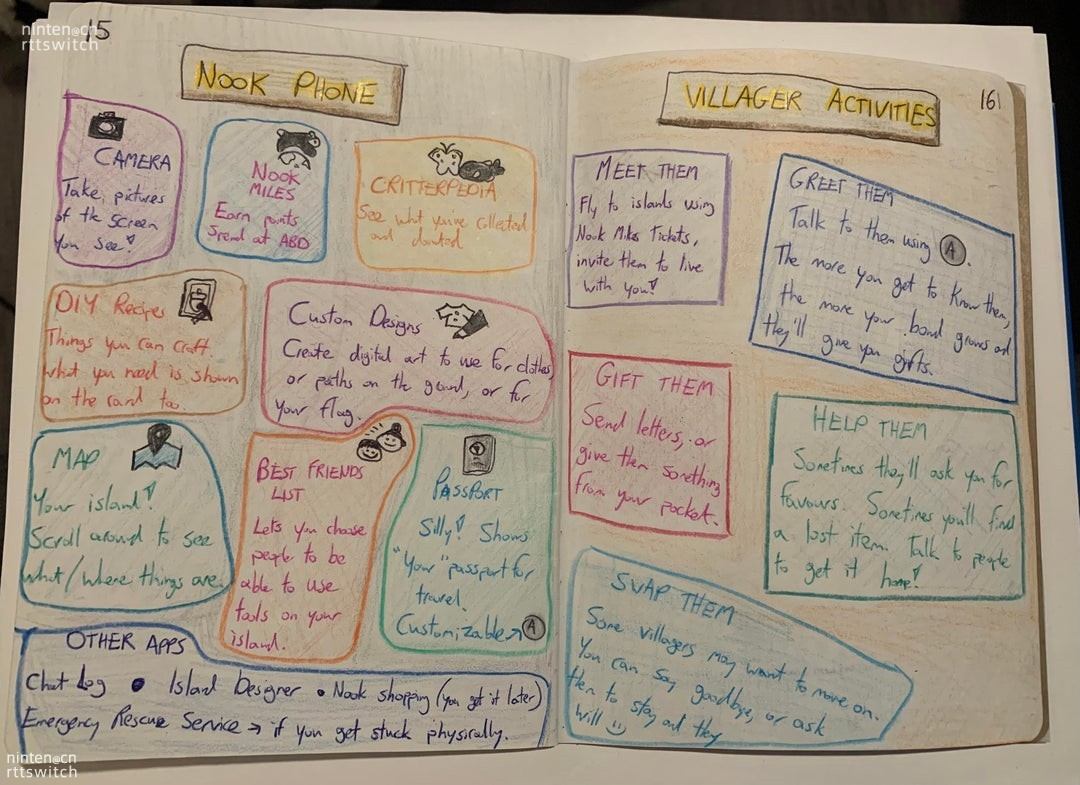 ninten@cn
rttswitch
15
NOOK PHONE
CAMERA
Take pictures
of the screen
you see!
NOOK
MILES
Earn points
Spend at ABD
CRITTERPEDIA
See what you've collected
and donated
DIY Recipes
Things you can craft
what you need is shown
on the card too.
Custom Designs
Create digital art to use for clothes,
or paths on the ground, or for
your flag.
MAP
Your island!
Scroll around to see
what/where things are.
BEST FRIENDS
LIST
Lets you choose
people to be
able to use
tools on your
island.
PASSPORT
Silly! Shows
"your" passport for
travel.
Customizable → A
OTHER APPS
Chat Log • Island Designer • Nook shopping (you get it later)
Emergency Rescue Service → if you get stuck physically.
VILLAGER ACTIVITIES
16
MEET THEM
Fly to islands using
Nook Miles Tickets,
invite them to live
with you!
GREET THEM
Talk to them using A.
The more you get to know them,
the more your bond grows and
they'll give you gifts.
GIFT THEM
Send letters, or
give them something
from your pocket.
HELP THEM
Sometimes they'll ask you for
favours. Sometimes you'll find
a lost item. Talk to people
to get it home!
SWAP THEM
Some villagers may want to move on.
You can say goodbye, or ask
them to stay and they
will :)
ninten@cn
rttswitch